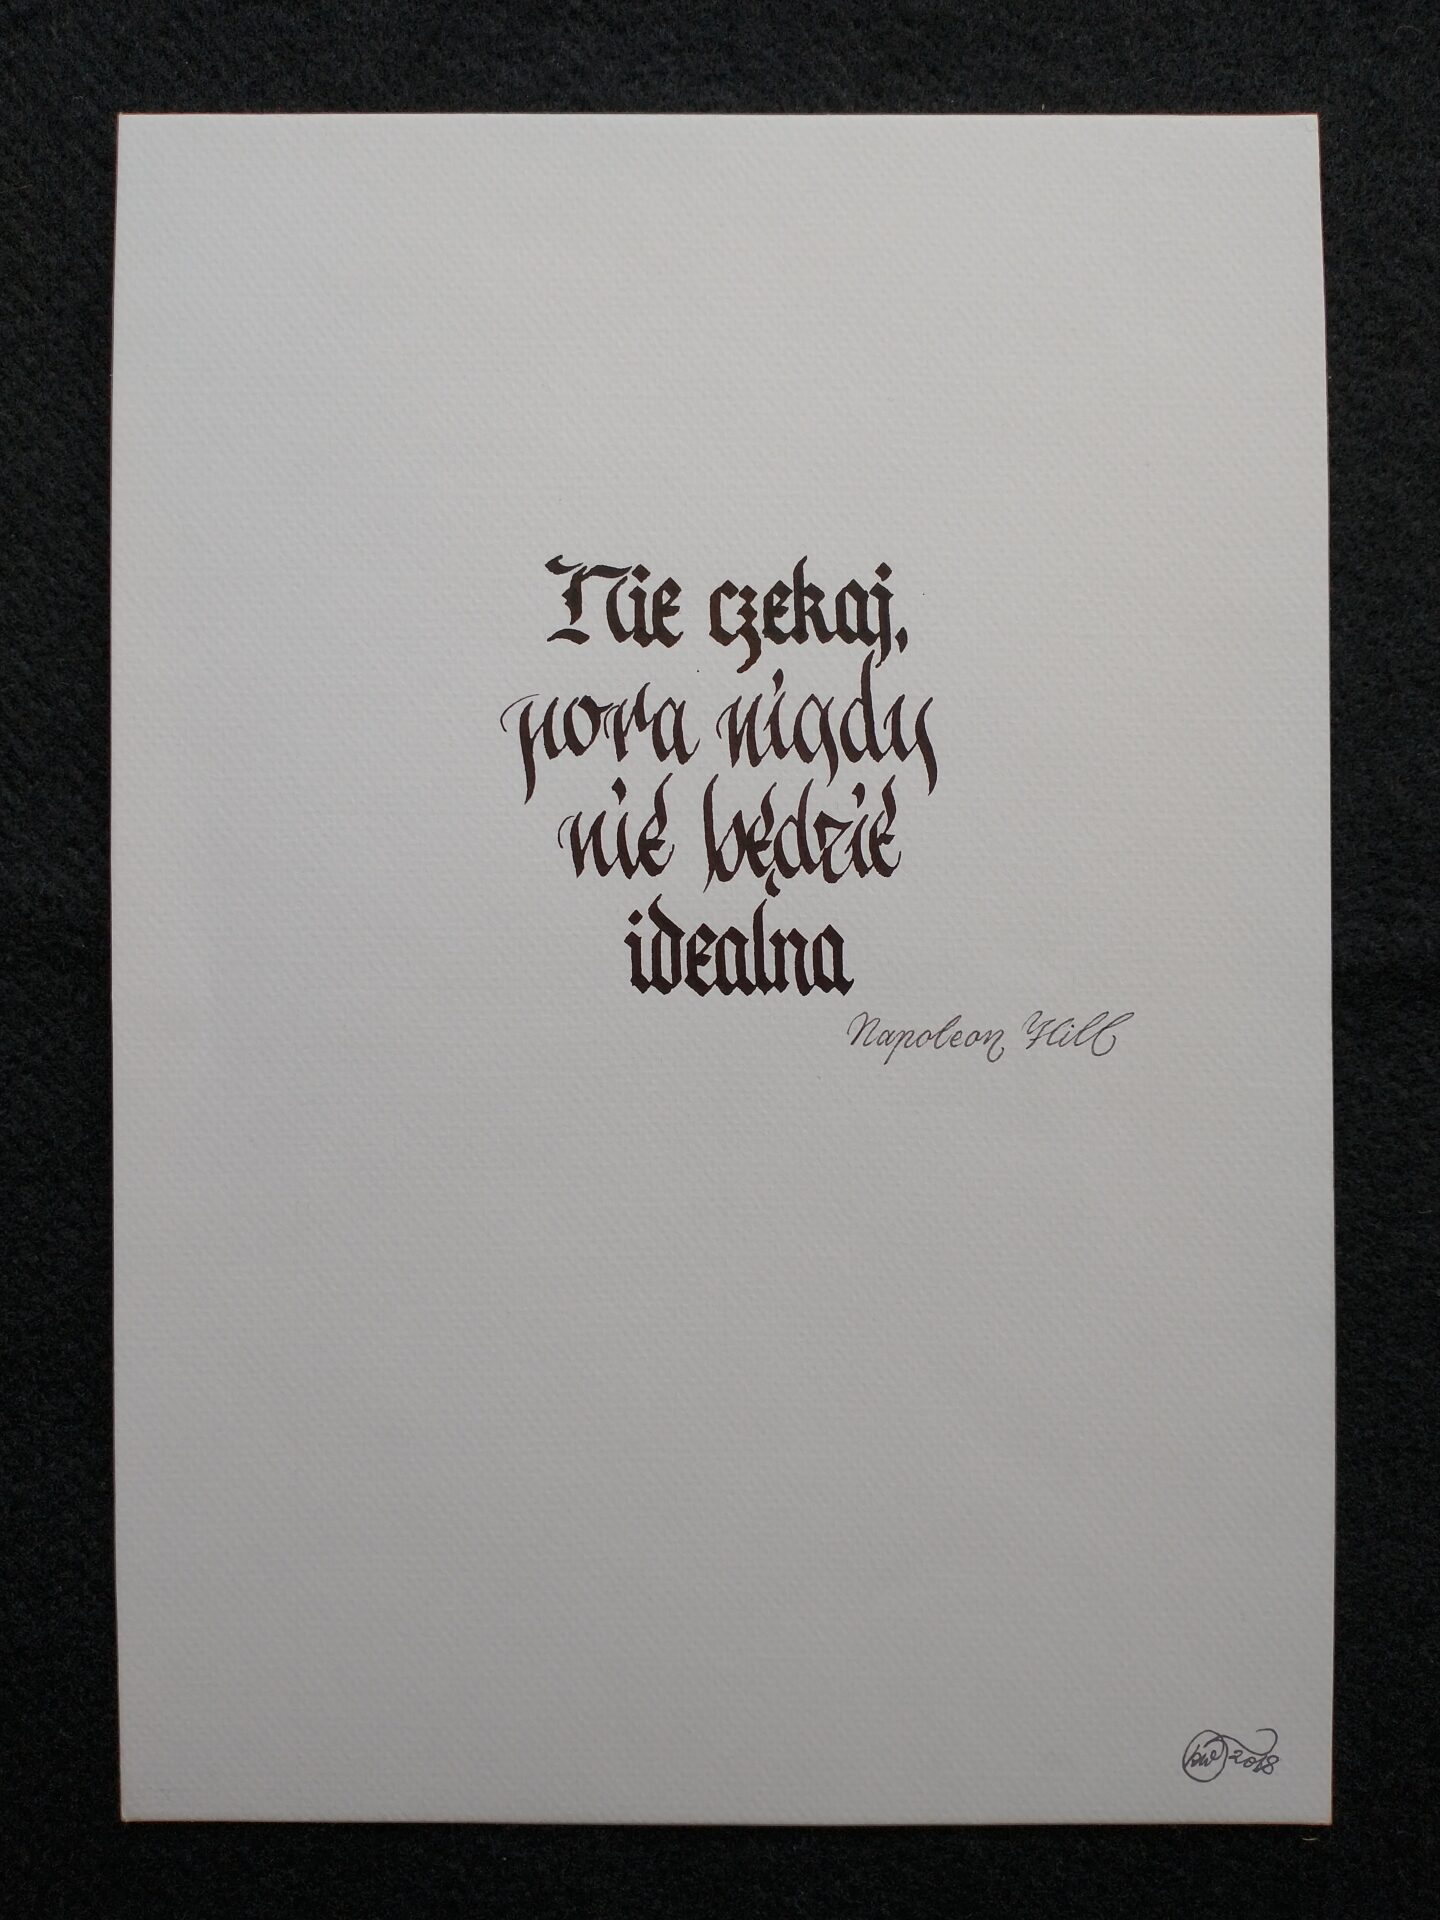 Nie czekaj,
pora nigdy
nie będzie
idealna
Napoleon Hill
2018